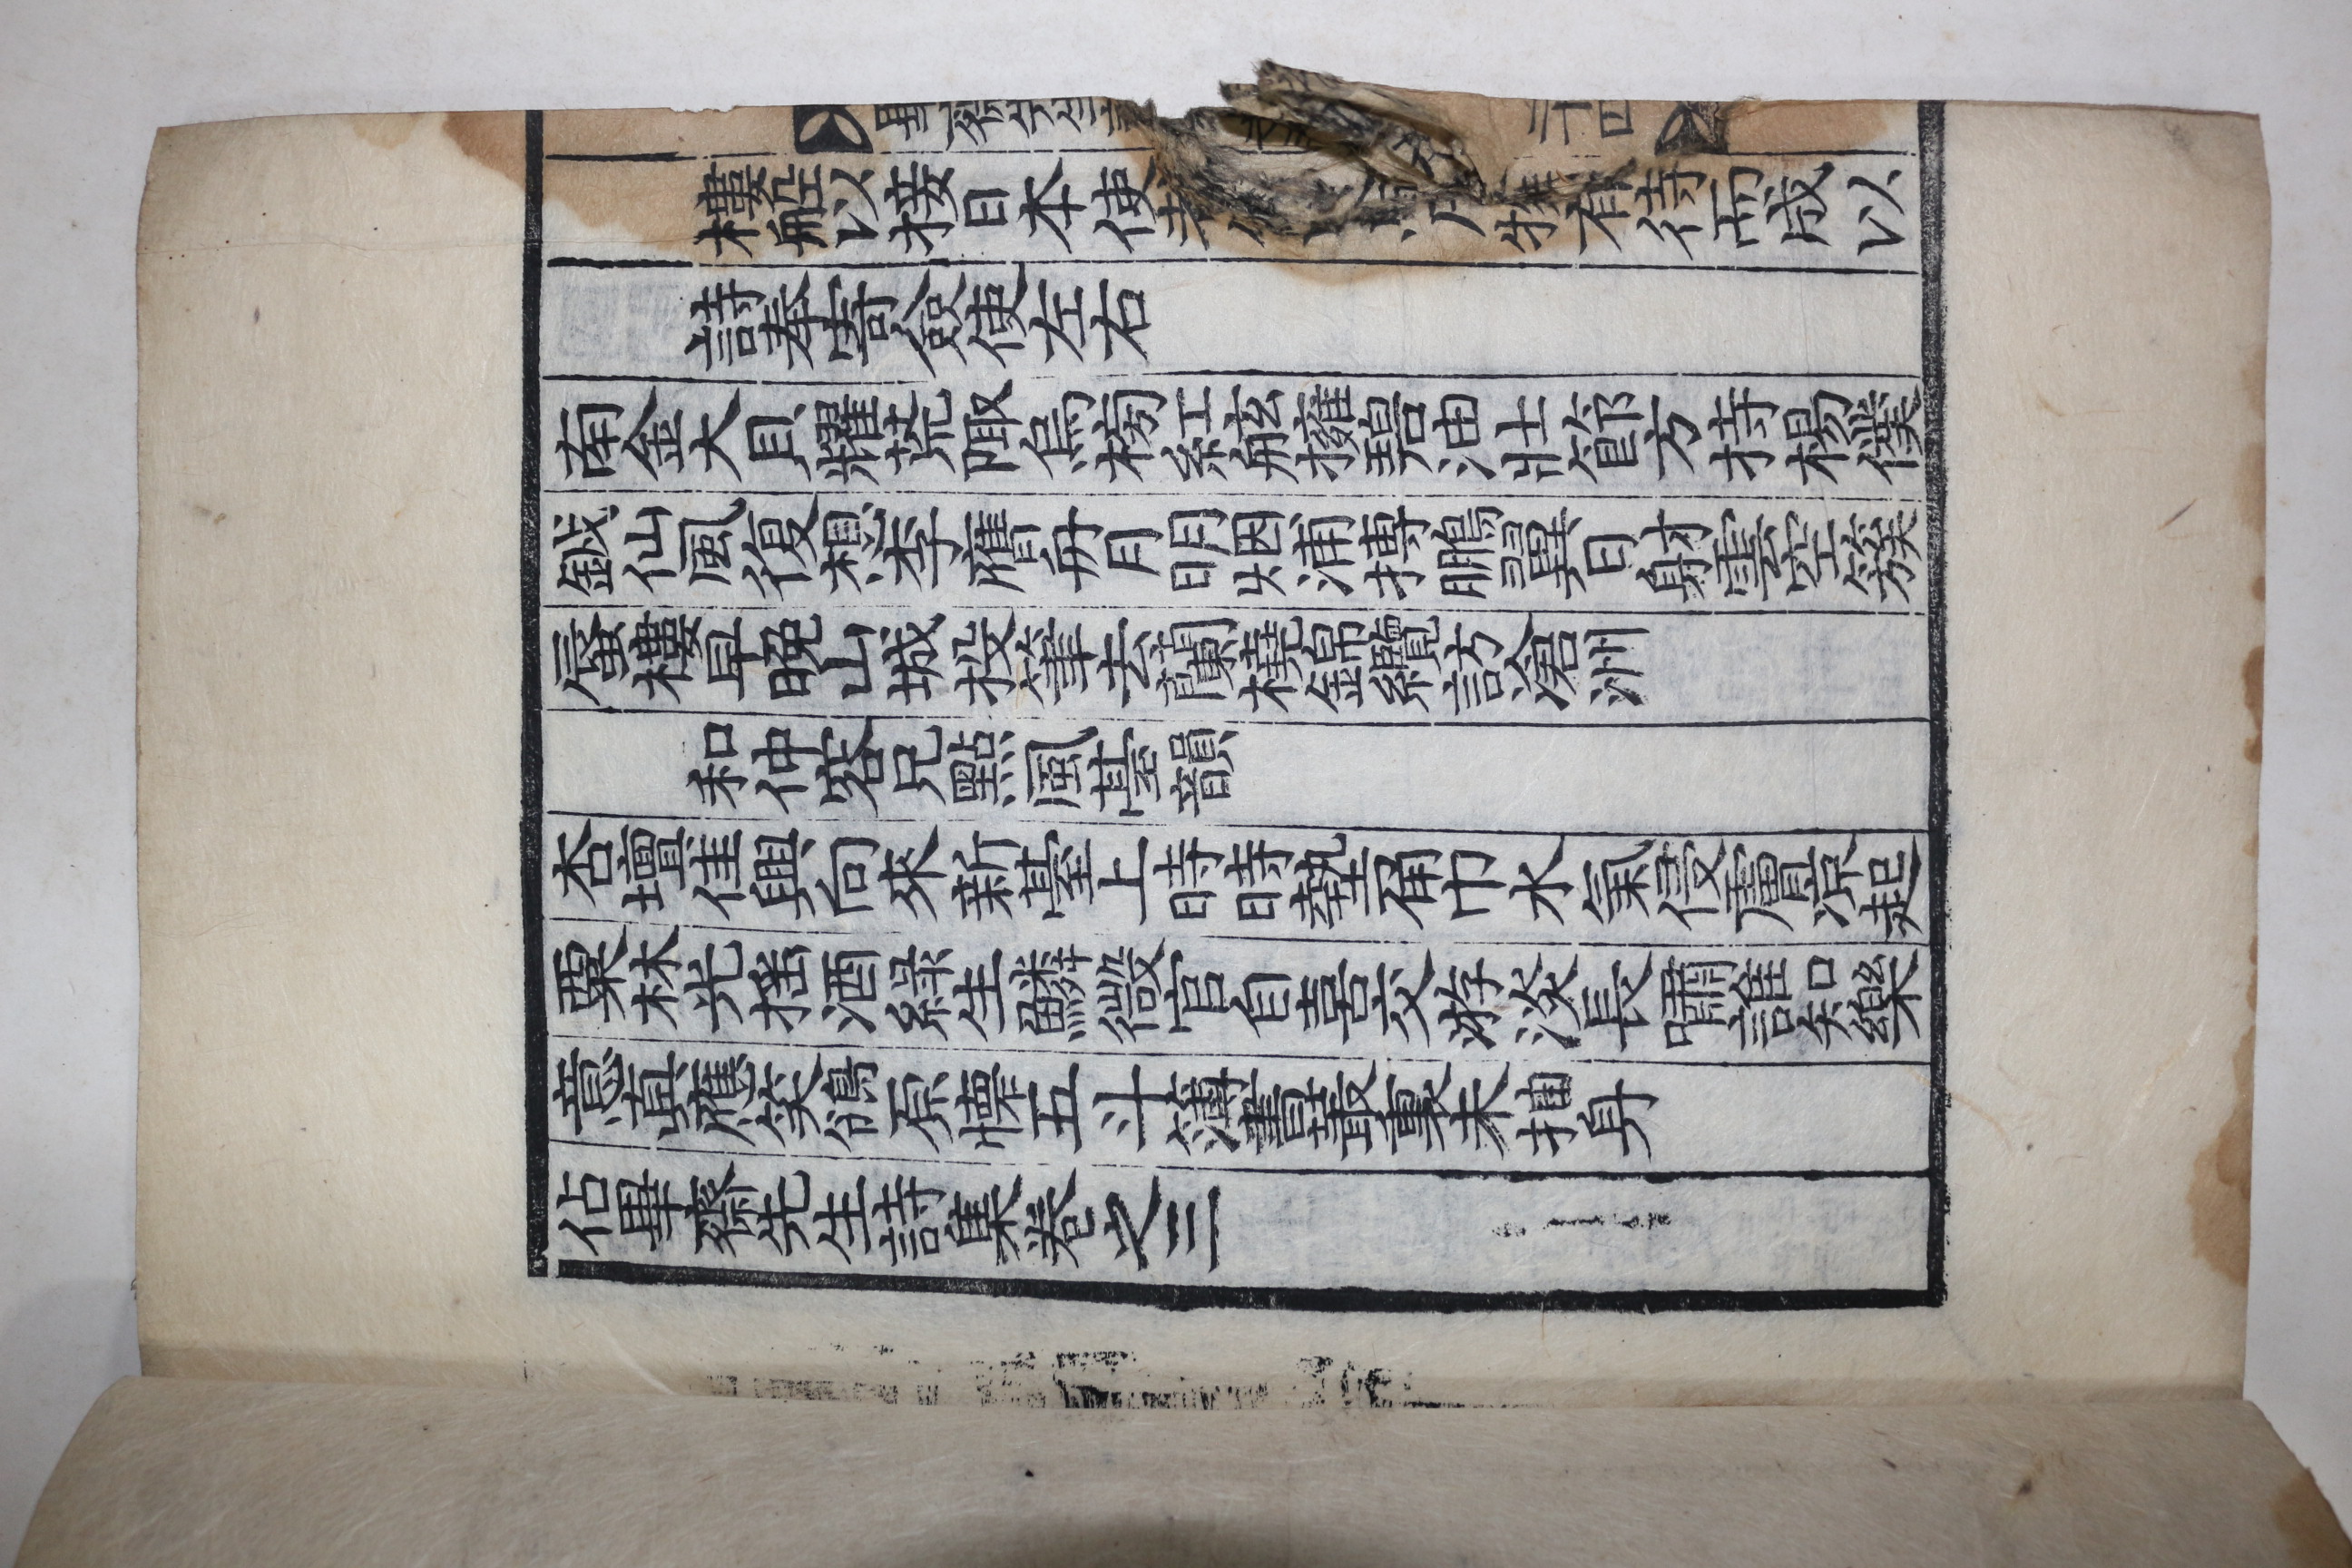 畢齋先生詩
二十四
樓舩以接日本使者 有待而成以
詩奉寄僉使左右
南金大貝耀荒陬烏榜紅舷擁碧油壯節方持楊僕
鉞仙風復想李膺舟月明烟浦搏鵬翼日射雲空簇
蜃樓早晚山城投筆去蘭橈錦纜訪滄洲
和仲容兄點風䑓韻
杏壇佳興向來新䑓上時時墊角巾水氣侵膚凉起
粟林光揺酒綠生鱗微官自喜交游淡長嘯誰知樂
意真應笑鴒原懷五斗簿書叢裏未抽身
佔畢齋先生詩集卷之三